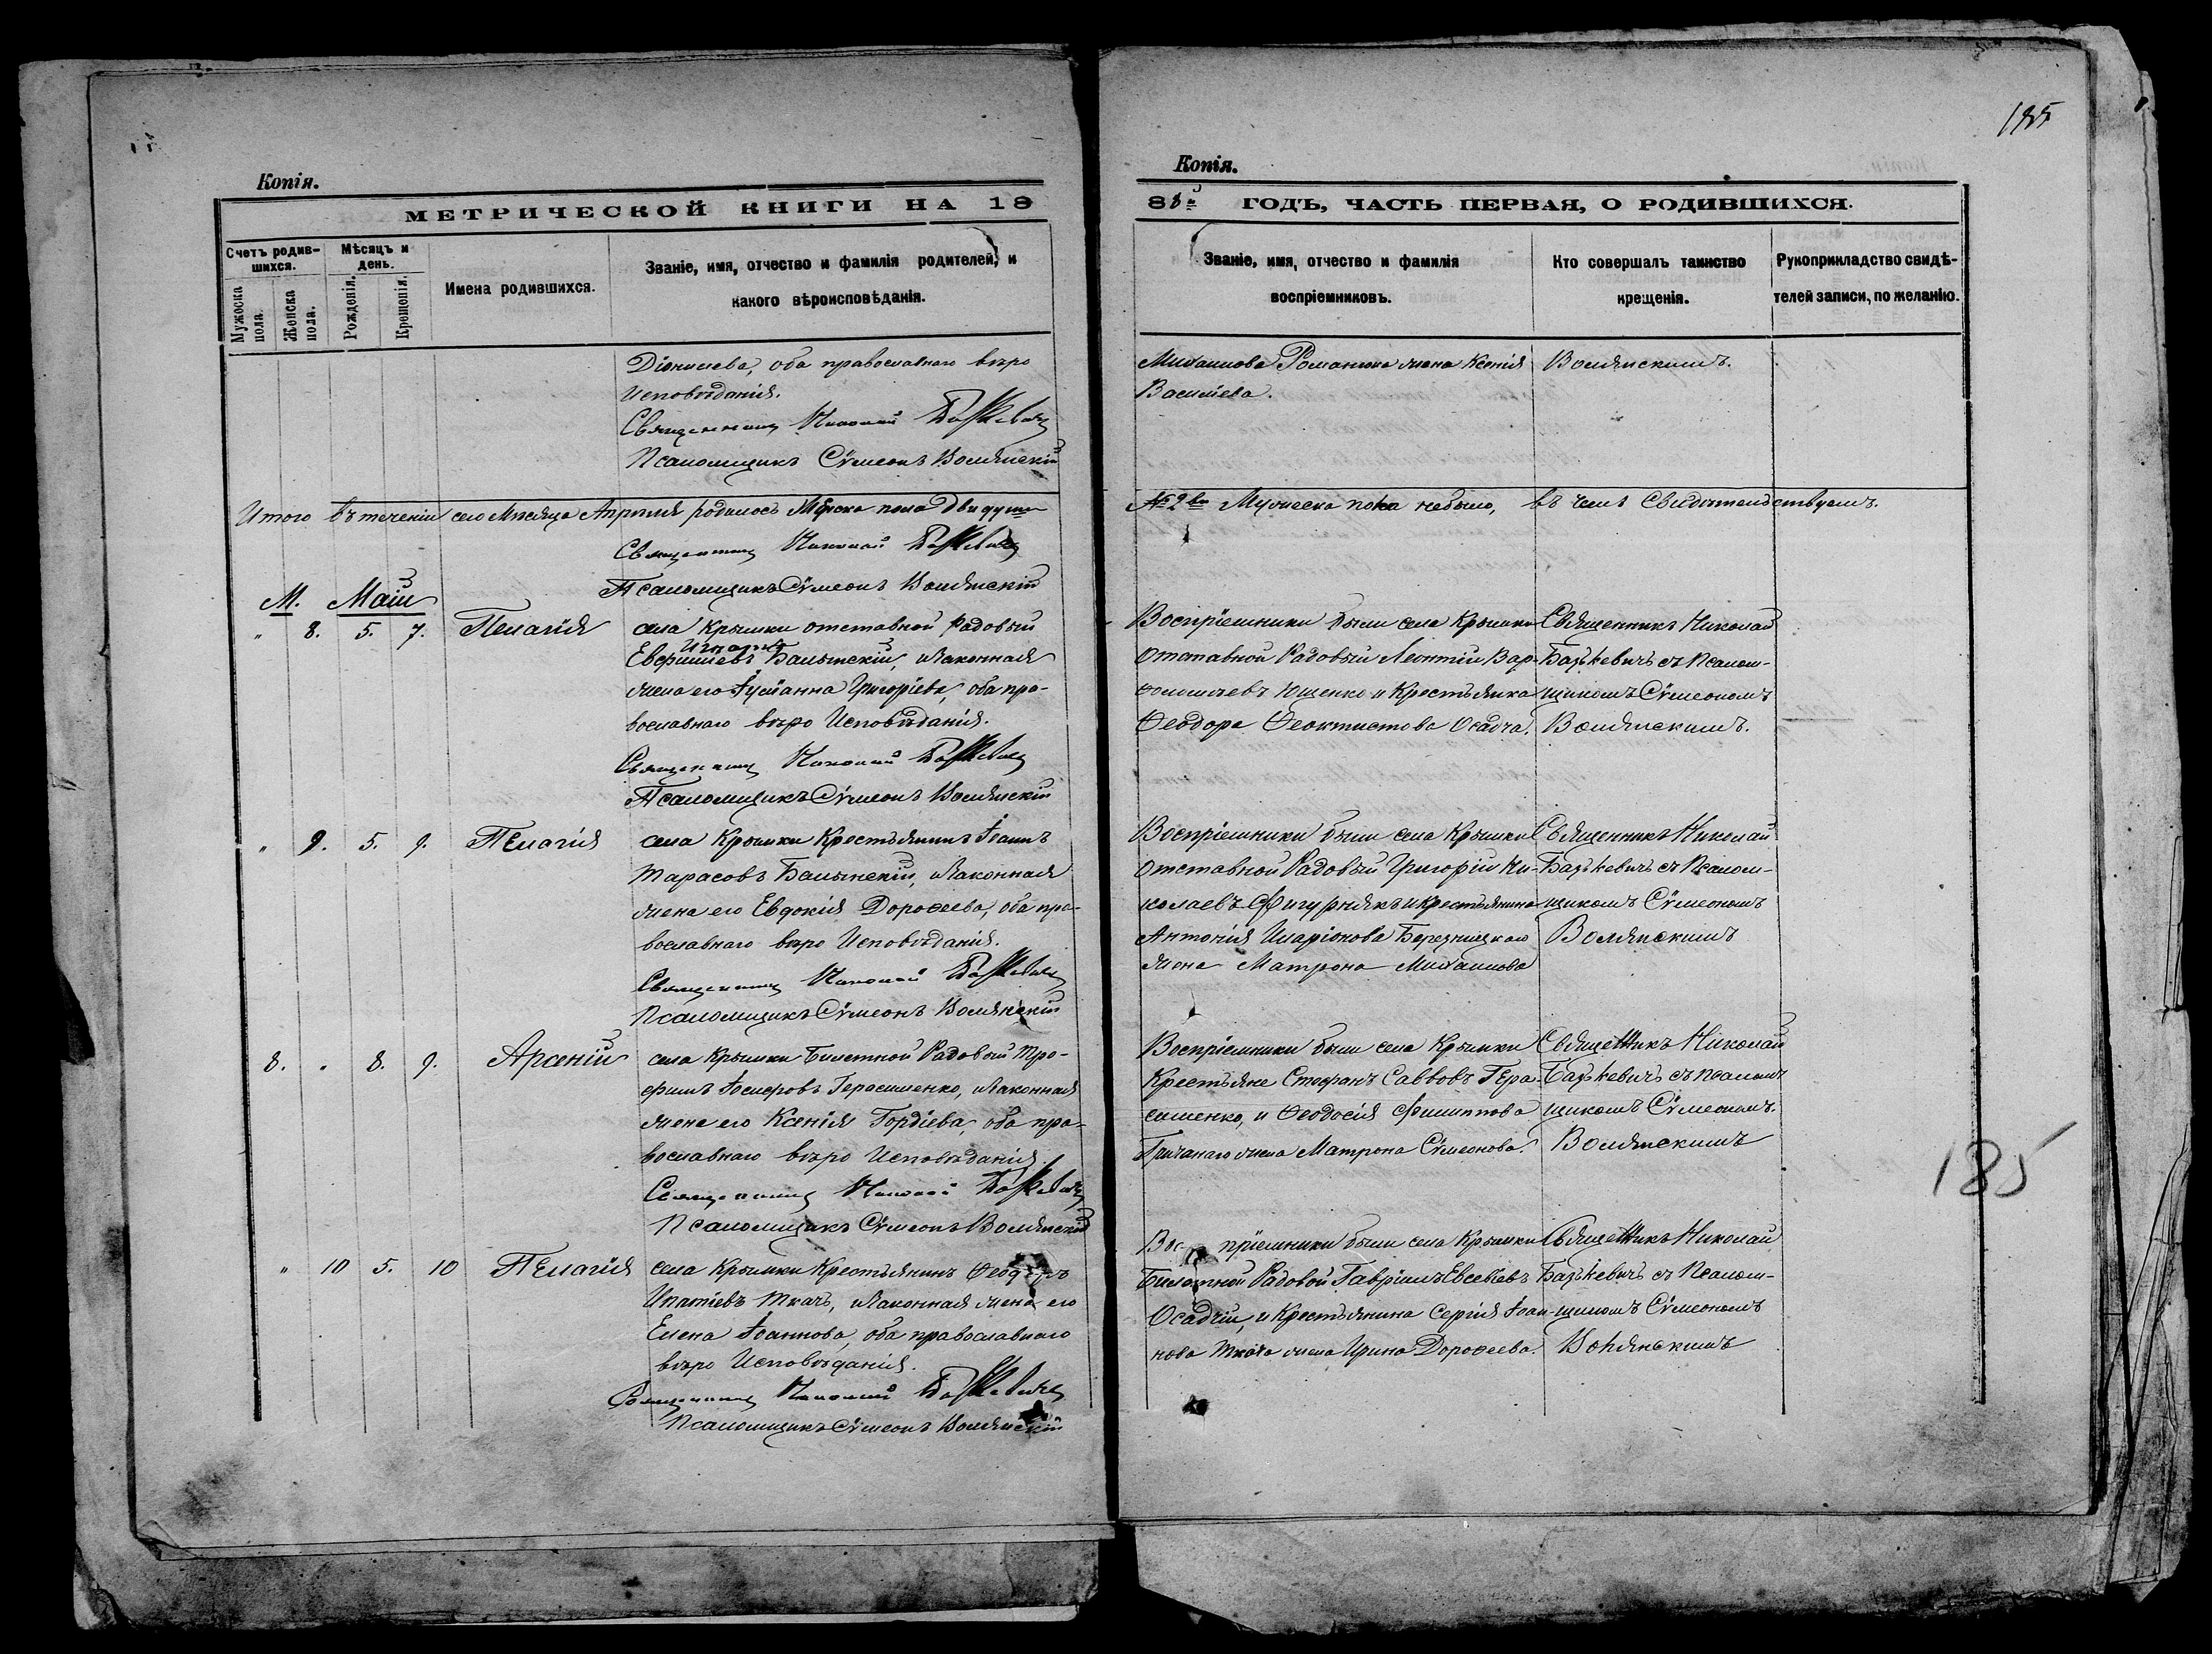 185
Копія.
МЕТРИЧЕСКОЙ КНИГИ НА 18
Счетъ родив-
шихся.
Мужеска
пола.
Женска
пола.
Мѣсяцъ и
день.
Рожденія.
Крещенія.
Имена родившихся.
Званіе, имя, отчество и фамилія родителей, и
какого вѣроисповѣданія.
Діонисіева, оба православнаго вѣро
Исповѣданія.
Священникъ Николай Базькевичъ
Псаломщикъ Сѵмеонъ Волянскій
Итого въ теченіи сего Мѣсяца Апрѣля родилось Женска пола двѣ души
Священникъ Николай Базькевичъ
Псаломщикъ Сѵмеонъ Волянскій
М. Маій
" 8. 5. 7. Пелагія
села Крымки отставной Рядовый
Балынскій, и законная
жена его Іуліанна Григоріева, оба пра-
вославнаго вѣро Исповѣданія.
Священникъ Николай Базькевичъ
Псаломщикъ Сѵмеонъ Волянскій
" 9. 5. 9. Пелагія
села Крымки Крестьянинъ Іоаннъ
Тарасовъ Балынскій, и законная
жена его Евдокія Дороѳеева, оба пра-
вославнаго вѣро Исповѣданія.
Священникъ Николай Базькевичъ
Псаломщикъ Сѵмеонъ Волянскій
8. " 8. 9. Арсеній
села Крымки Билетной Рядовый Тро-
фимъ Іосифовъ Герасименко, и законная
жена его Ксенія Гордіева, оба пра-
вославнаго вѣро Исповѣданія.
Священникъ Николай Базькевичъ
Псаломщикъ Сѵмеонъ Волянскій
" 10 5. 10 Пелагія
села Крымки Крестьянинъ Ѳеодоръ
Ипатіевъ Ткачъ, и законная жена его
Елена Іоаннова, оба православнаго
вѣро Исповѣданія.
Священникъ Николай Базькевичъ
Псаломщикъ Сѵмеонъ Волянскій
Копія.
88й ГОДЪ, ЧАСТЬ ПЕРВАЯ, О РОДИВШИХСЯ.
Званіе, имя, отчество и фамилія
воспріемниковъ.
Кто совершалъ таинство
крещенія.
Рукоприкладство свидѣ-
телей записи, по желанію.
Михаилова Романюка жена Ксенія
Василіева.
Волянскимъ.
№ 2 Мужеска пола небыло, въ чемъ Свидѣтельствуемъ.
Воспріемники были села Крымки
Отставной Рядовый Леонтій Вар-
ѳоломѣевъ Ющенко и Крестьянка
Ѳеодора Ѳеоктистова Осадча.
Священникъ Николай
Базькевичъ съ Псалом-
щикомъ Сѵмеономъ
Волянскимъ.
Воспріемники были села Крымки
Отставной Рядовый Григорій Ни-
колаевъ Фигурнякъ и крестьянина
Антонія Иларіонова Березницкаго
жена Матрона Михаилова
Священникъ Николай
Базькевичъ съ Псалом-
щикомъ Сѵмеономъ
Волянскимъ
Воспріемники были села Крымки
Крестьяне Стефанъ Саввовъ Гера-
сименко, и Ѳеодосія Филиппова
жена Матрона Сѵмеонова.
Священникъ Николай
Базькевичъ съ Псалом
щикомъ Сѵмеономъ.
Волянскимъ
Воспріемники были села Крымки
Билетной Рядовой Гавріилъ Евсевіевъ
Осадчій, и Крестьянина Сергія Іоан-
нова Ткача жена Ирина Дороѳеева.
Священникъ Николай
Базькевичъ съ Псалом-
щикомъ Сѵмеономъ
Волянскимъ
185